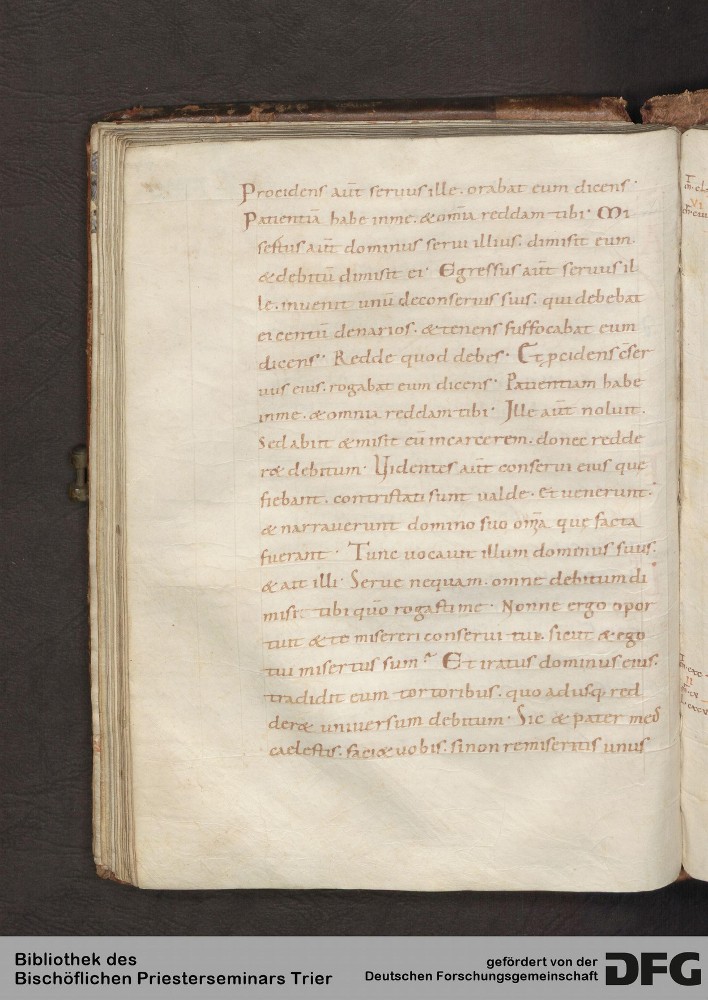 Procidens aut̄ seruus ille. orabat eum dicens.
Patientiā habe in me. & om̄ia reddam tibi. Mi
sertus aut̄ dominus serui illius. dimisit eum.
& debitū dimisit ei. Egressus aut̄ seruus il
le. inuenit unū de conseruis suis. qui debebat
ei centū denarios. & tenens suffocabat eum
dicens. Redde quod debes. Et ꝓcidens c̄ser
uus eius. rogabat eum dicens. Patientiam habe
in me. & omnia reddam tibi. Ille aut̄ noluit.
Sed abiit & misit eū in carcerem. donec redde
r& debitum. Videntes aut̄ conserui eius que
fiebant. contristati sunt ualde. Et uenerunt.
& narrauerunt domino suo om̄a que facta
fuerant. Tunc uocauit illum dominus suus.
& ait illi. Serue nequam. omne debitum di
misi. tibi quō rogasti me. Nonne ergo opor
tuit & te misereri conserui tui. sicut & ego
tui misertus sum. Et iratus dominus eius.
tradidit eum tortoribus. quo adusq; red
der& uniuersum debitum. Sic & pater meus
caelestis. faci& uobis. si non remiseritis unus
Bibliothek des
Bischöflichen Priesterseminars Trier
gefördert von der
Deutschen Forschungsgemeinschaft
DFG